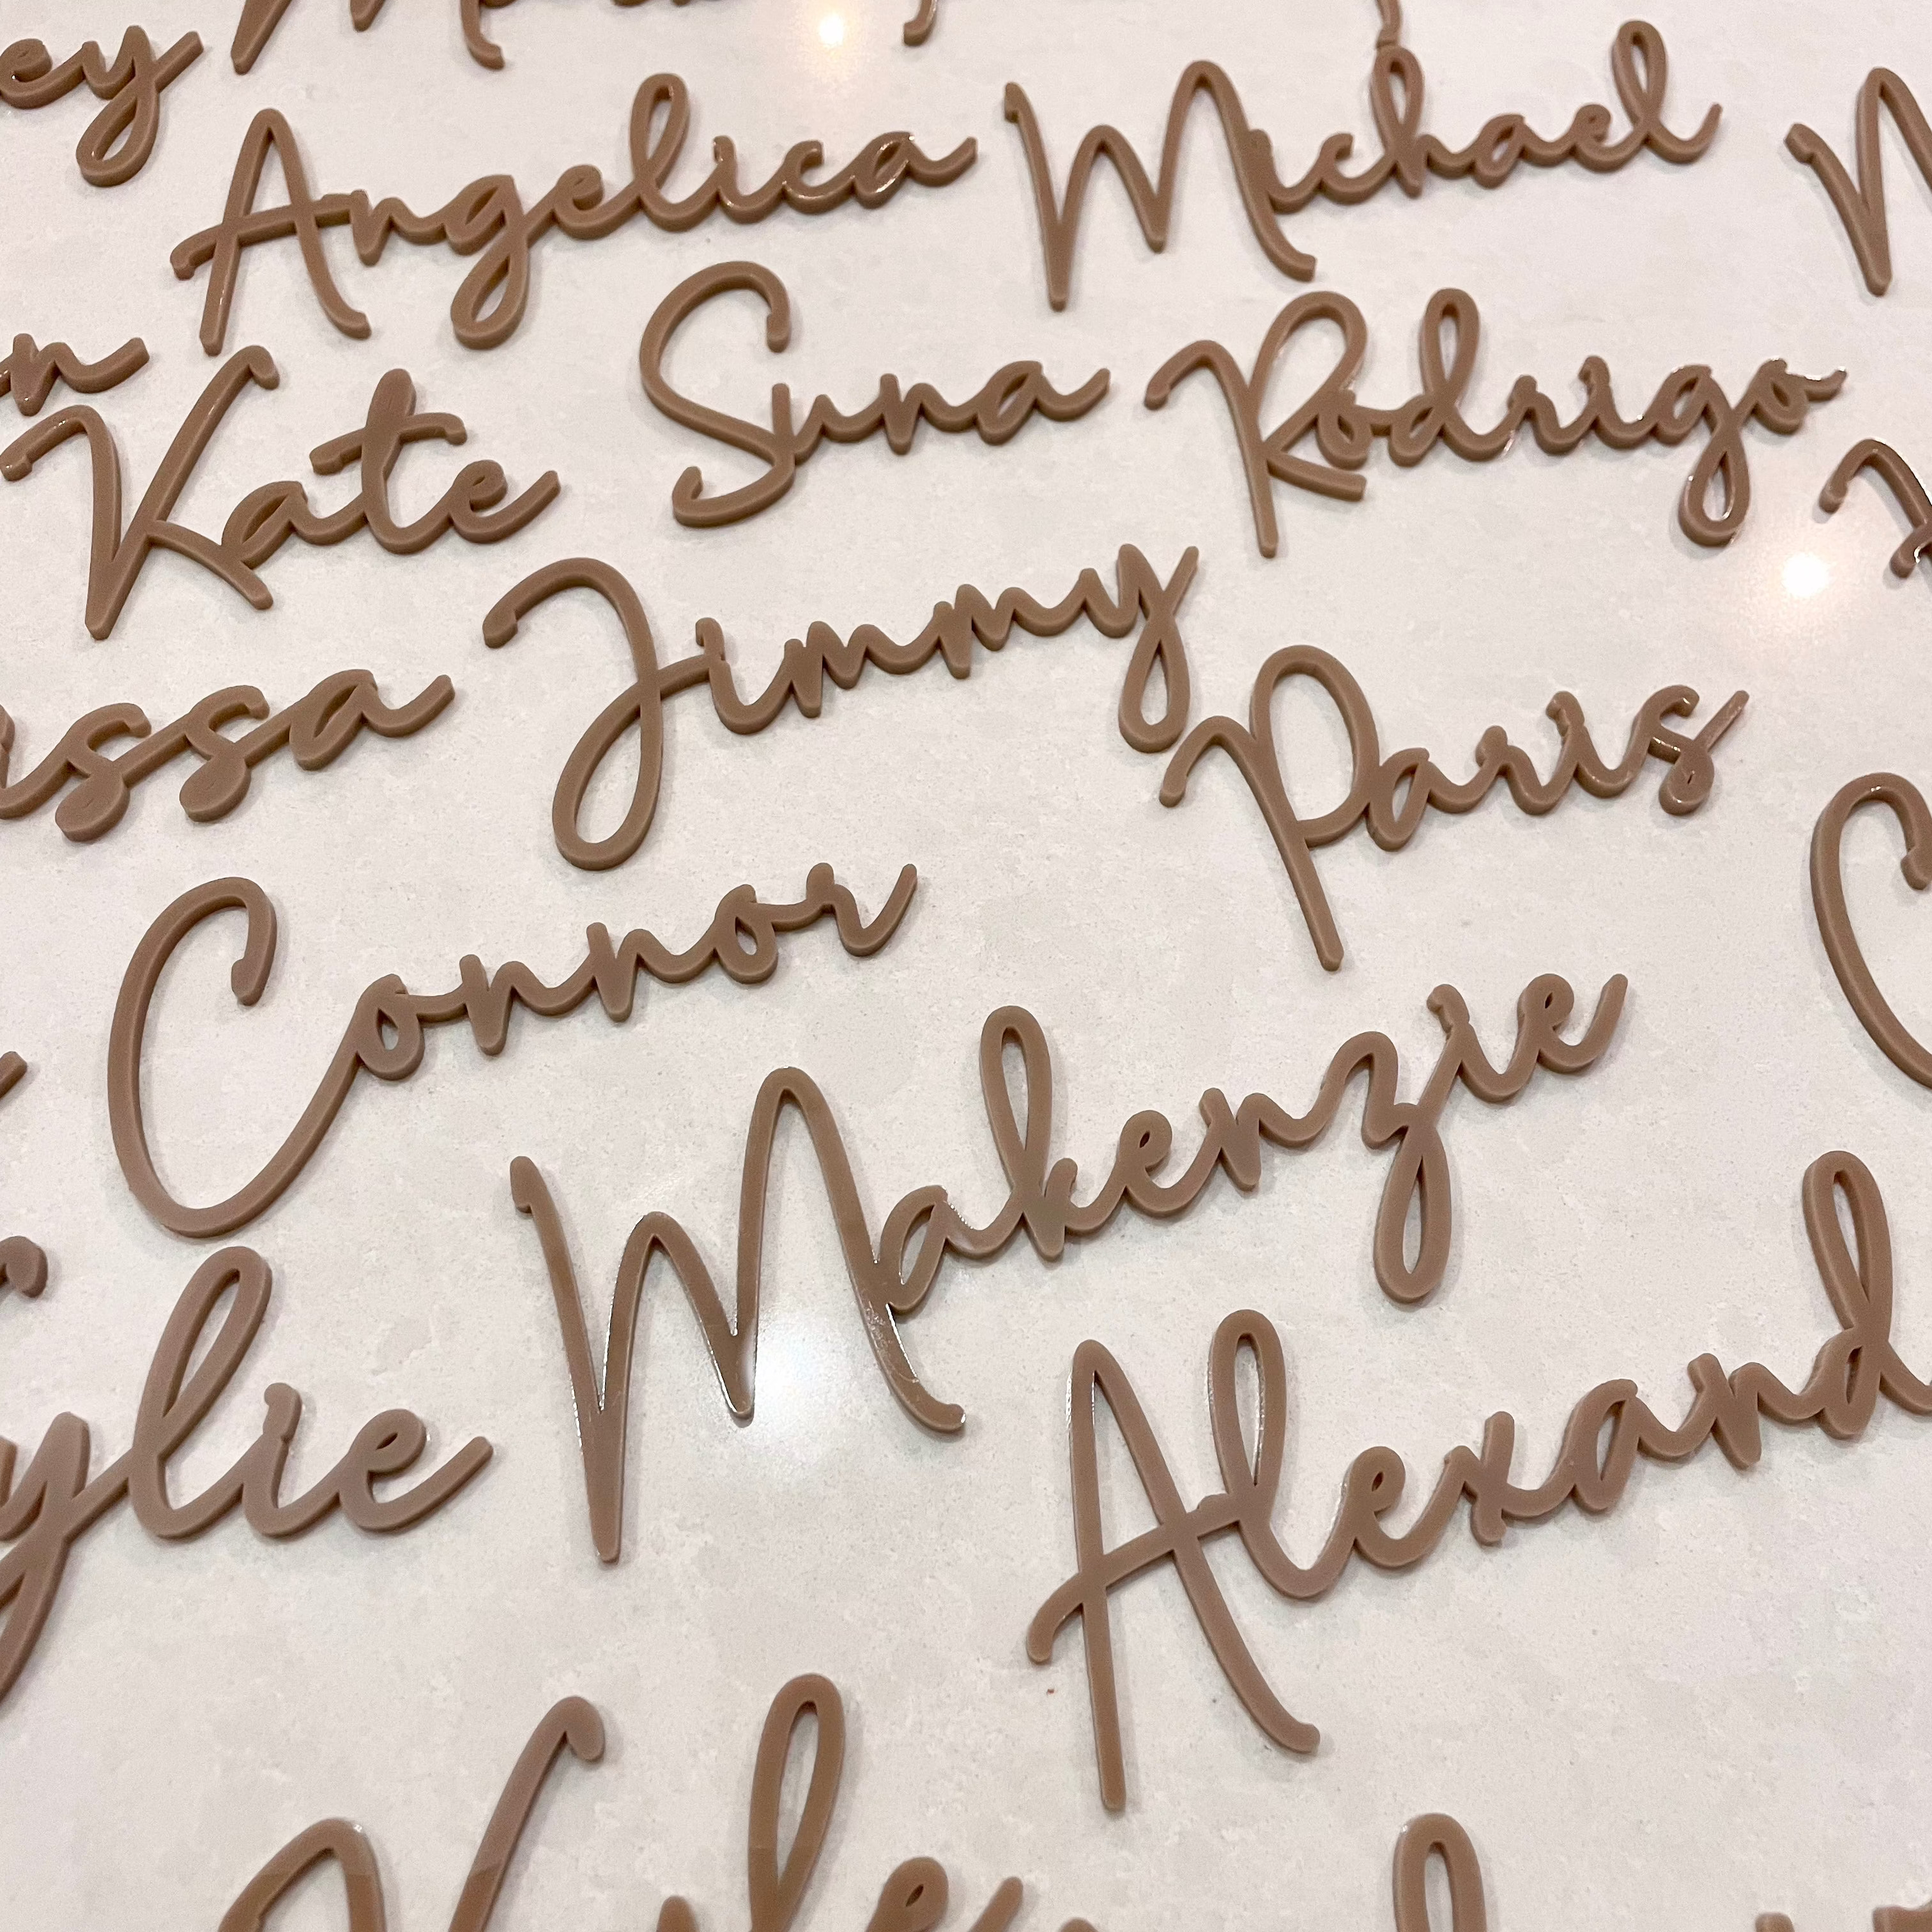 ey
Angelica Michael
n Kate Suna Rodrigo
issa Jimmy Paris
Connor C
Makenzie
ylie Alexand
Kyle